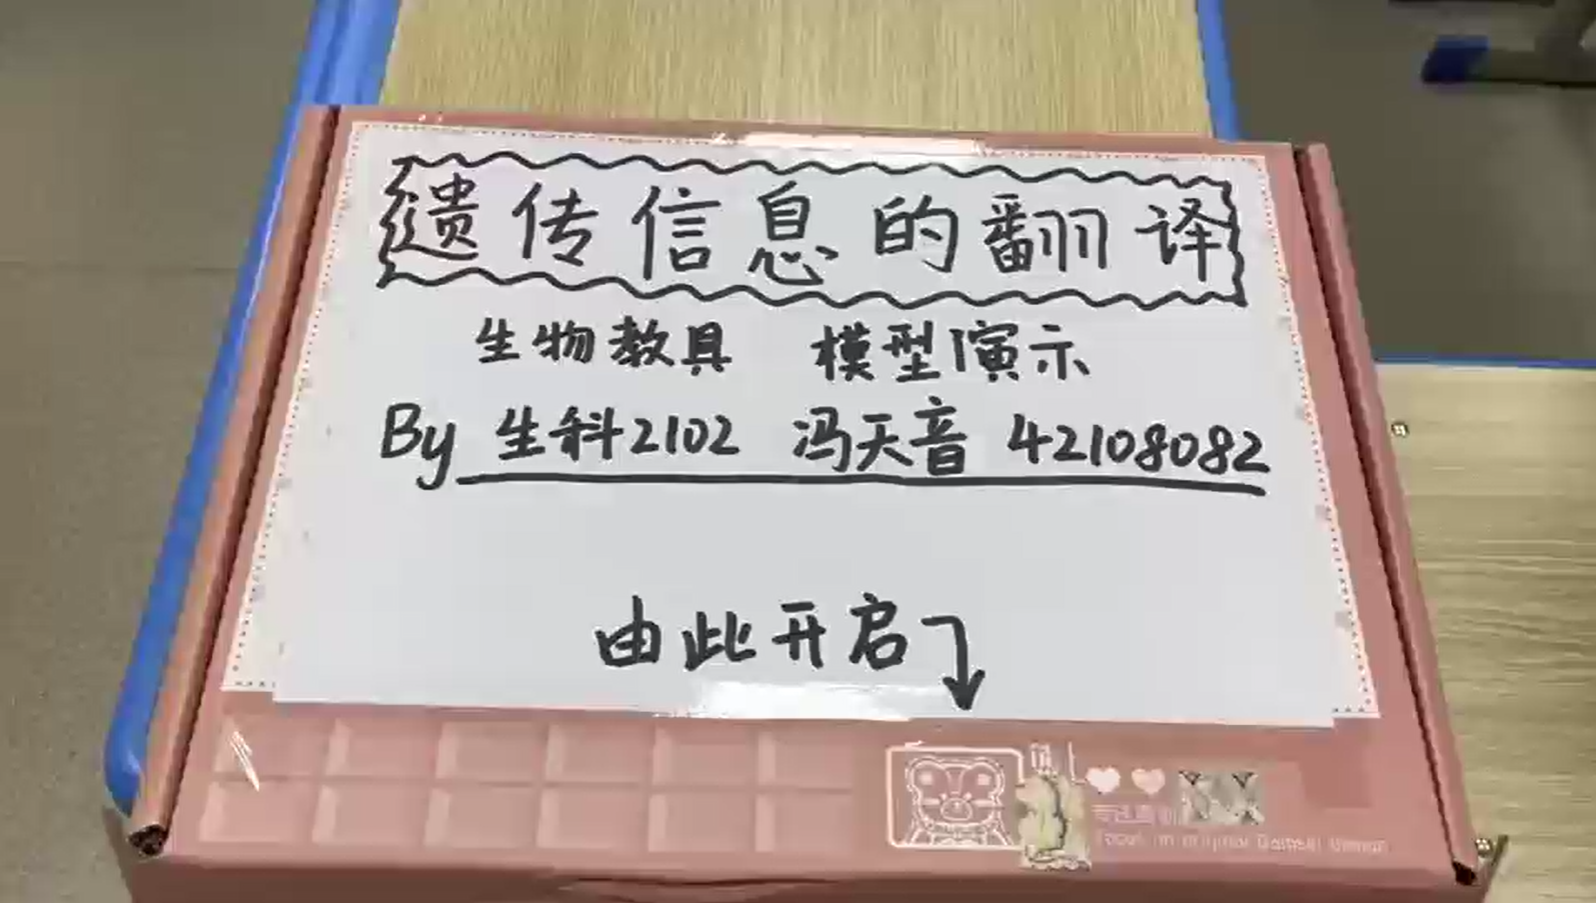 遗传信息的翻译
生物教具 模型演示
By 生科2102 冯天音 42108082
由此开启